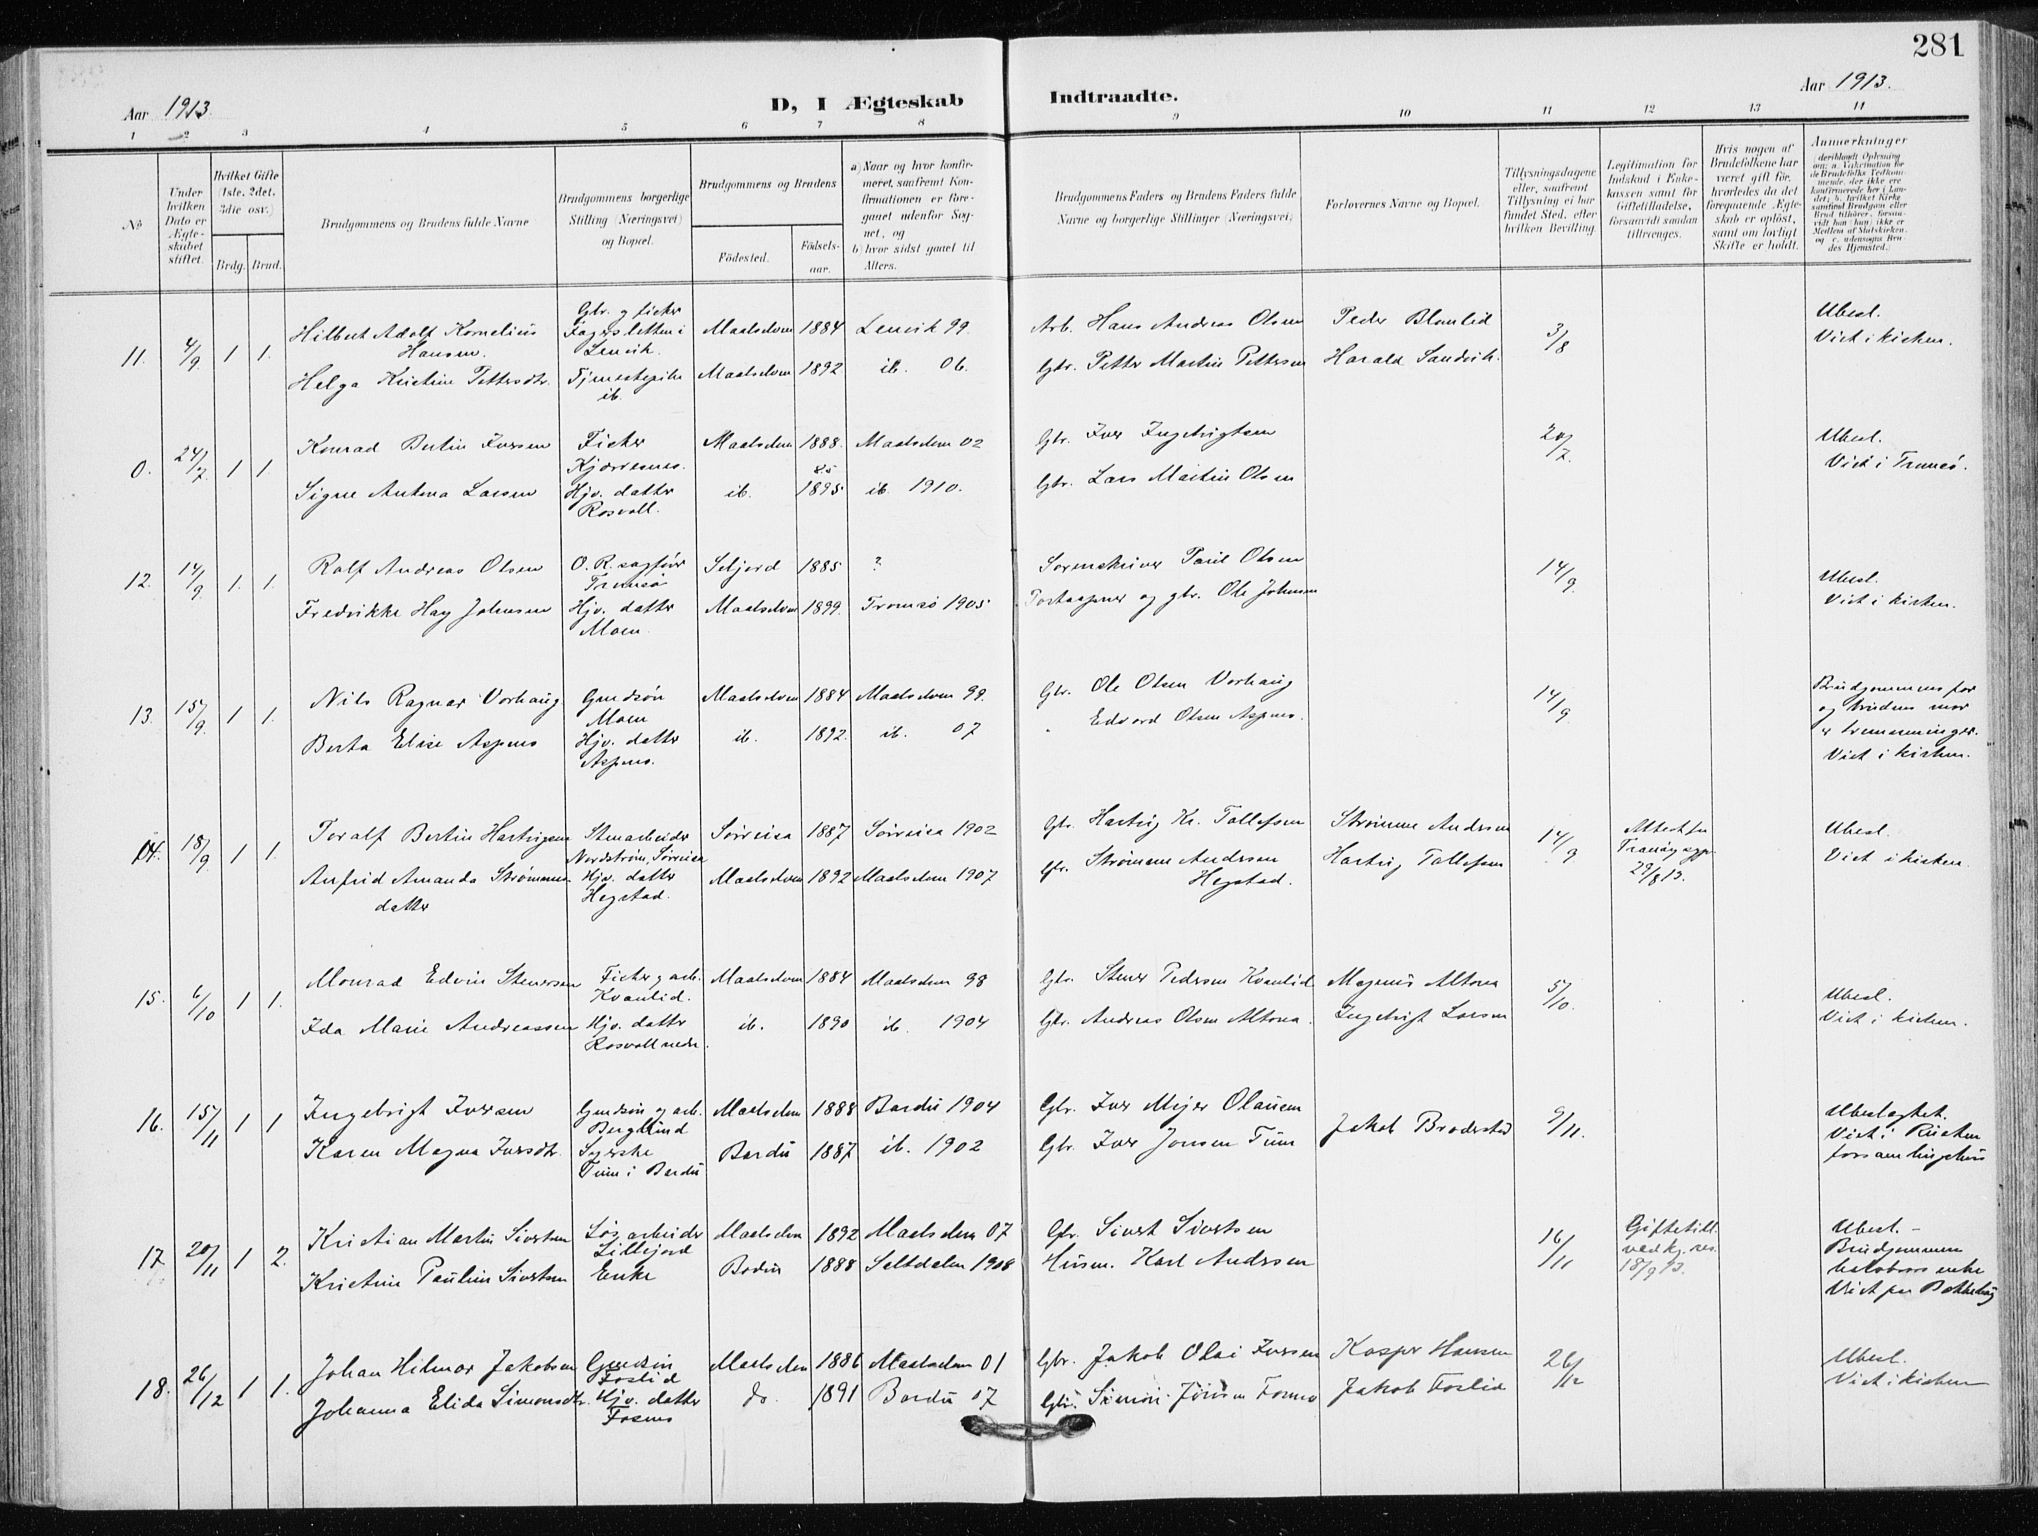 281
Aar 1913.
D, I Ægteskab Indtraadte.
Aar 1913.
1 2 3 4 5 6 7 8 9 10 11 12 13 14
No
Under hvilken Dato er Ægteskabet stiftet.
Hvilket Gifte (1ste, 2det, 3die osv.)
Brdg. Brud.
Brudgommens og Brudens fulde Navne
Brudgommens borgerlige Stilling (Næringsvei) og Bopæl.
Brudgommens og Brudens
Födested. Födsels-aar.
a) Naar og hvor konfirmeret, saafremt Konfirmationen er foregaaet udenfor Sognet, og
b) hvor sidst gaaet til Alters.
Brudgommens Faders og Brudens Faders fulde Navne og borgerlige Stillinger (Næringsvei)
Forlovernes Navne og Bopæl.
Tillysningsdagene eller, saafremt Tillysning ei har fundet Sted, efter hvilken Bevilling.
Legitimation for Indskud i Enkekassen samt for Giftetilladelse, forsaavidt saadan tiltrænges.
Hvis nogen af Brudefolkene har været gift før, hvorledes da det foregaaende Ægteskab er oplöst, samt om lovligt Skifte er holdt.
Anmerkninger
11. 4/9 1 1. Hilbert Adolf Kornelius Hansen. Gbr. og fisker Fagersletten i Lenvik. Maalselven 1884 Lenvik 99. Arb. Hans Andreas Olsen Peder Blomlid 3/8 Ubesl. Viet i kirken.
Helga Kristine Pettersdtr. Tjenestepike ib. Maalselven 1892 ib. 06. Gbr. Petter Martin Pettersen Harald Sandvik.
0. 24/7 1 1. Konrad Bertin Iversen Fisker Kjærresnes. Maalselven 1888. Maalselven 02 Gbr. Iver Ingebrigtsen 20/7. Ubesl. Viet i Tromsö.
Signe Antona Larsen Hjv. datter Rosvoll. ib. 85 1895 ib. 1910. Gbr. Lars Martin Olsen
12. 14/9. 1. 1. Rolf Andreas Olsen O. R. sagfører Tromsø Seljord 1885 ? Sorenskriver Paul Olsen 14/9. Ubesl. Viet i kirken.
Fredrikke Hay Johnsen Hjv. datter Moen. Maalselven 1899. Tromsø 1905. og gbr. Ole Johnsen
13. 15/9. 1 1. Nils Ragnar Vorhaug Gaardsøn Moen Maalselven 1884 Maalselven 99. Gbr. Ole Olsen Vorhaug 14/9. Brudgommens far og brudens mor Viet i kirken.
Berta Elise Aspenes Hjv. datter Aspenes. ib. 1892. ib. 07 Edvard Olsen Aspenes.
14. 18/9 1 1. Toralf Bertin Hartvigsen Stenarbeider Nordstrøm, Sørreisa Sørreisa 1887 Sørreisa 1902 Gbr. Hartvig Kr. Tollefsen Strømme Andersen 14/9 Attest fra Tranøy sgpr. 29/8 13. Ubesl. Viet i kirken.
Anfrid Amanda Strømmes-datter Hjv. datter Hegstad. Maalselven 1892 Maalselven 1907 Gbr. Strømme Andersen Hegstad. Hartvig Tollefsen
15. 6/10 1 1. Monrad Edvin Stenersen Fisker og arb. Kvanlid. Maalselven 1884 Maalselven 98 Gbr. Stener Pedersen Kvanlid Magnus Altona 5/10. Ubesl. Viet i kirken.
Ida Marie Andreassen Hjv. datter Rosvoll nedre. ib. 1890 ib. 1904 Gbr. Andreas Olsen Altona. Ingebrigt Larsen
16. 15/11 1 1 Ingebrigt Iversen Gaardsøn og arb. Berglund Maalselven 1888 Bardu 1904 Gbr. Iver Mejer Olausen Jakob Brodersted 9/11. Ubeslægtet. Viet i forsamlingshus
Karen Magna Iversdtr. Syerske Tun i Bardu Bardu 1887 ib. 1902 Gbr. Iver Jonsen Tun
17. 20/11 1 2. Kristian Martin Sivertsen Løsarbeider Lillejord Maalselven 1892 Maalselven 07 Gbr. Sivert Sivertsen 16/11 Giftetill. ved kg. res. 18/9 13. Ubesl. - Brudgommens halvbrors enke Viet paa Bakkehaug
Kristine Pauline Sivertsen Enke Bodin 1888 Saltdalen 1908 Husm. Karl Andersen
18. 26/12 1 1. Johan Hilmar Jakobsen Gaardsøn Foslid Maalselven 1886 Maalselven 01 Gbr. Jakob Olai Iversen Kasper Hansen 26/12 Ubesl. Viet i kirken
Johanna Elida Simonsdtr. Hjv. datter Fosnes do. 1891 Bardu 07 Gbr. Simon Jønsen Jakob Foslid